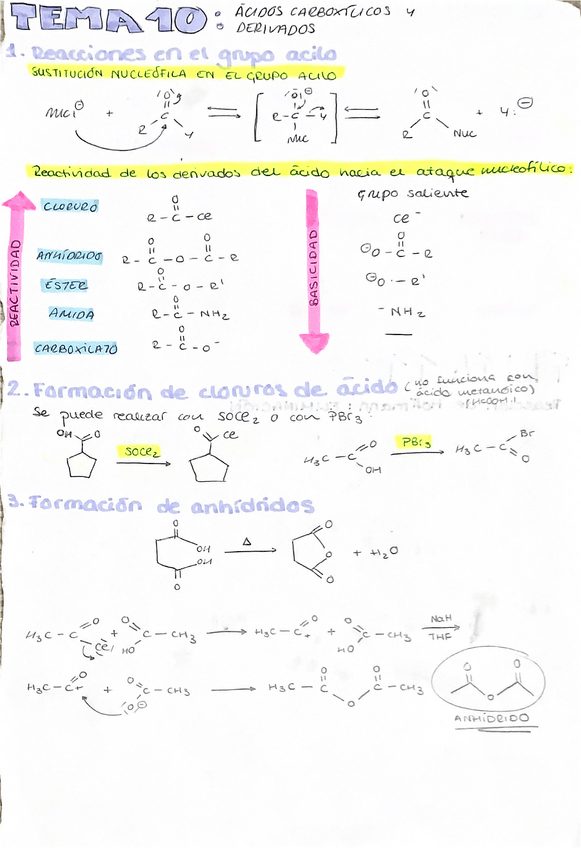 TEMA 10: ÁCIDOS CARBOXÍLICOS Y
DERIVADOS
1. Reacciones en el grupo acilo
SUSTITUCIÓN NUCLEÓFILA EN EL GRUPO ACILO
Nuc:⊖ + R C O Y ⇌ [R-C-Y O⊖ Nuc] ⇌ R C O Nuc + Y:⊖
Reactividad de los derivados del ácido hacia el ataque nucleofílico:
REACTIVIDAD
BASICIDAD
grupo saliente
CLORURO R-C-Cl O Cl⁻
ANHÍDRIDO R-C-O-C-R O O ⊖O-C-R O
ÉSTER R-C-O-R' O ⊖O-R'
AMIDA R-C-NH₂ O ⁻NH₂
CARBOXILATO R-C-O⁻ O —
2. Formación de cloruros de ácido (no funciona con
ácido metanóico)
(HCOOH)
Se puede realizar con SOCl₂ o con PBr₃:
OH C O SOCl₂ O C Cl H₃C-C O OH PBr₃ H₃C-C Br O
3. Formación de anhídridos
O OH OH O Δ O O O + H₂O
H₃C-C O Cl + O C-CH₃ HO → H₃C-C+ O + O C-CH₃ HO NaH
THF
H₃C-C+ O + O C-CH₃ O⊖ → H₃C-C O O C O CH₃ O O O
ANHÍDRIDO